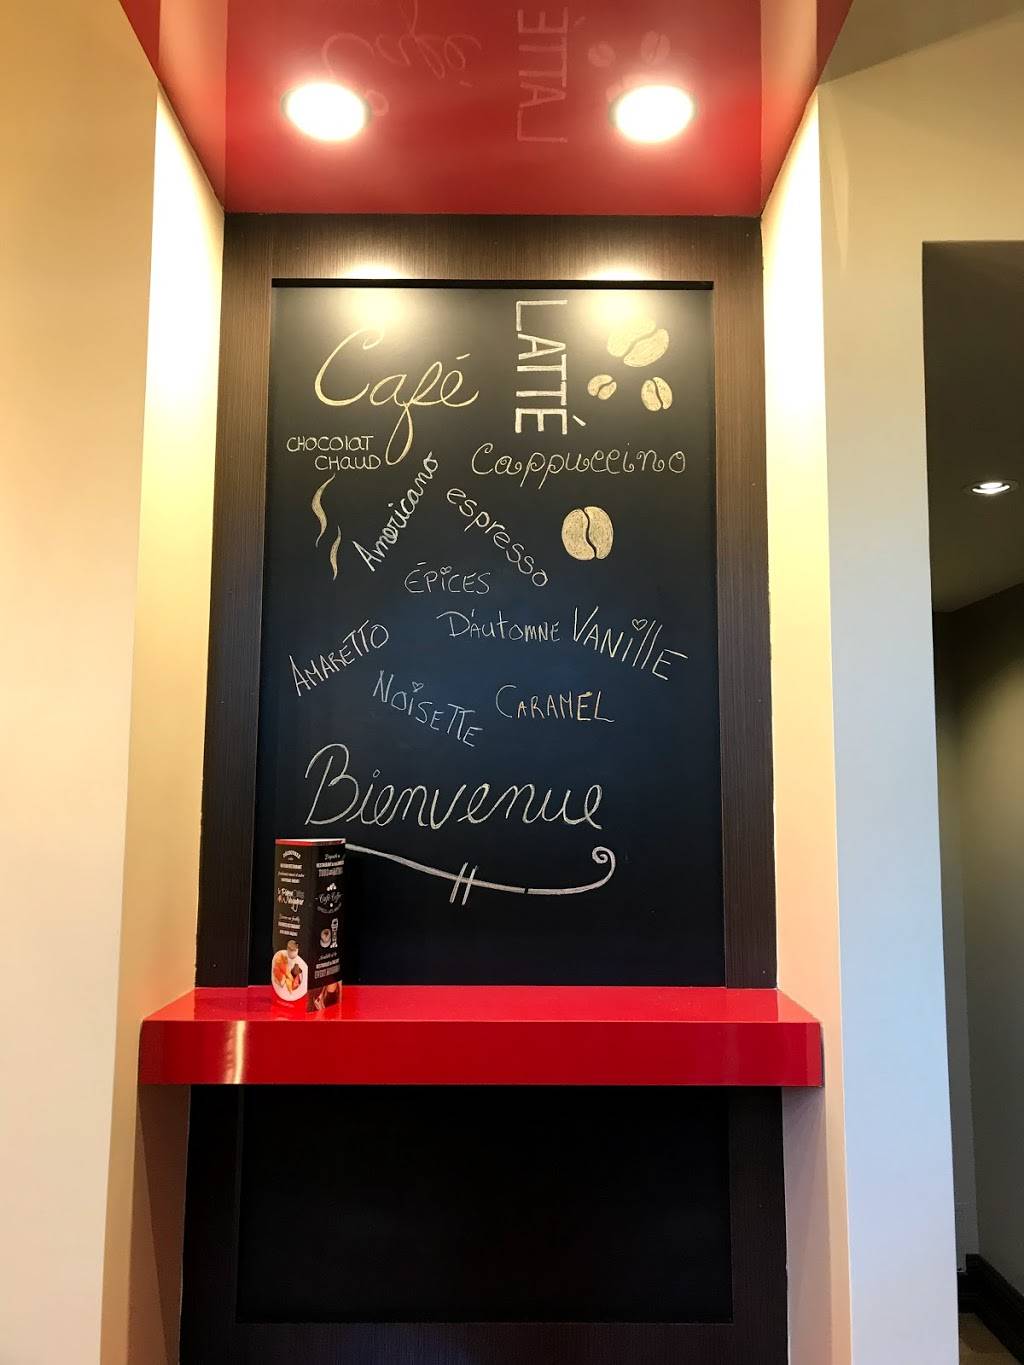 Café
LATTÉ
CHOCOLAT
CHAUD
Cappuccino
Americano
espresso
ÉPICES
D'AUTOMNE
VANILLE
AMARETTO
NOISETTE
CARAMEL
Bienvenue